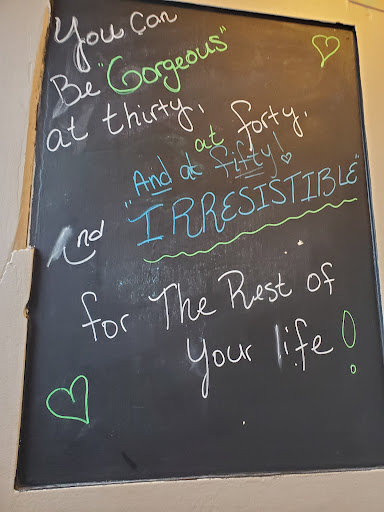 You Can
Be "Gorgeous"
at thirty,
at forty,
And at fifty!
And "IRRESISTIBLE"
for The Rest of
Your life!